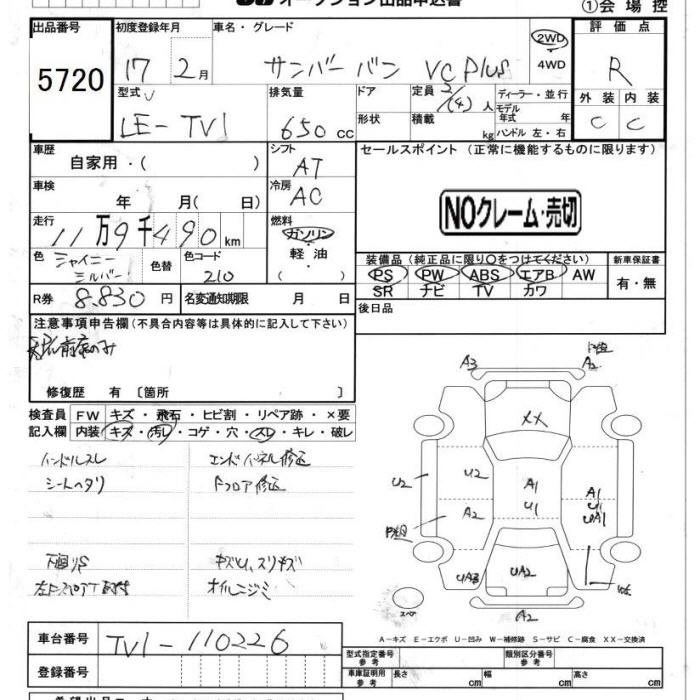 オークション出品申込書 ①会場控
出品番号 初度登録年月 車名・グレード 評価点
5720 17 2月 サンバー バン VC Plus 2WD 4WD R
型式 排気量 ドア 定員 ディーラー・並行 外装 内装
LE-TV1 650cc 形状 積載 2/(4)人 kg モデル年式 年 ハンドル 左・右 C C
車歴 自家用・( ) シフト AT セールスポイント (正常に機能するものに限ります)
車検 年 月( 日) 冷房 AC NOクレーム・売切
走行 11万9千490km 燃料 ガソリン・軽油・
色 シャイニーシルバー 色替 色コード 210 装備品(純正品に限り○をつけてください) 新車保証書
PS PW ABS エアB AW 有・無
SR ナビ TV カワ
R券 8.830円 名変通知期限 月 日 後日品
注意事項申告欄(不具合内容等は具体的に記入して下さい)
前席のみ
修復歴 有〔箇所 〕
検査員 FW キズ・飛石・ヒビ割・リペア跡・×要
記入欄 内装 キズ・汚レ・コゲ・穴・スレ・キレ・破レ
ハンドルスレ エンドパネル修正
シートヘタリ Fフロア修正
下廻りS キズU、スリキズ
オイルニジミ
A3 A2
XX
U2 U2 A1 A1
A2 U1 U1
UA1
UA3 UA2
A2
スペア
A-キズ E-エクボ U-凹み W-補修跡 S-サビ C-腐食 XX-交換済
車台番号 TV1-110226 型式指定番号 参考 類別区分番号 参考
登録番号 車庫証明用 参考 長さ cm 幅 cm 高さ cm